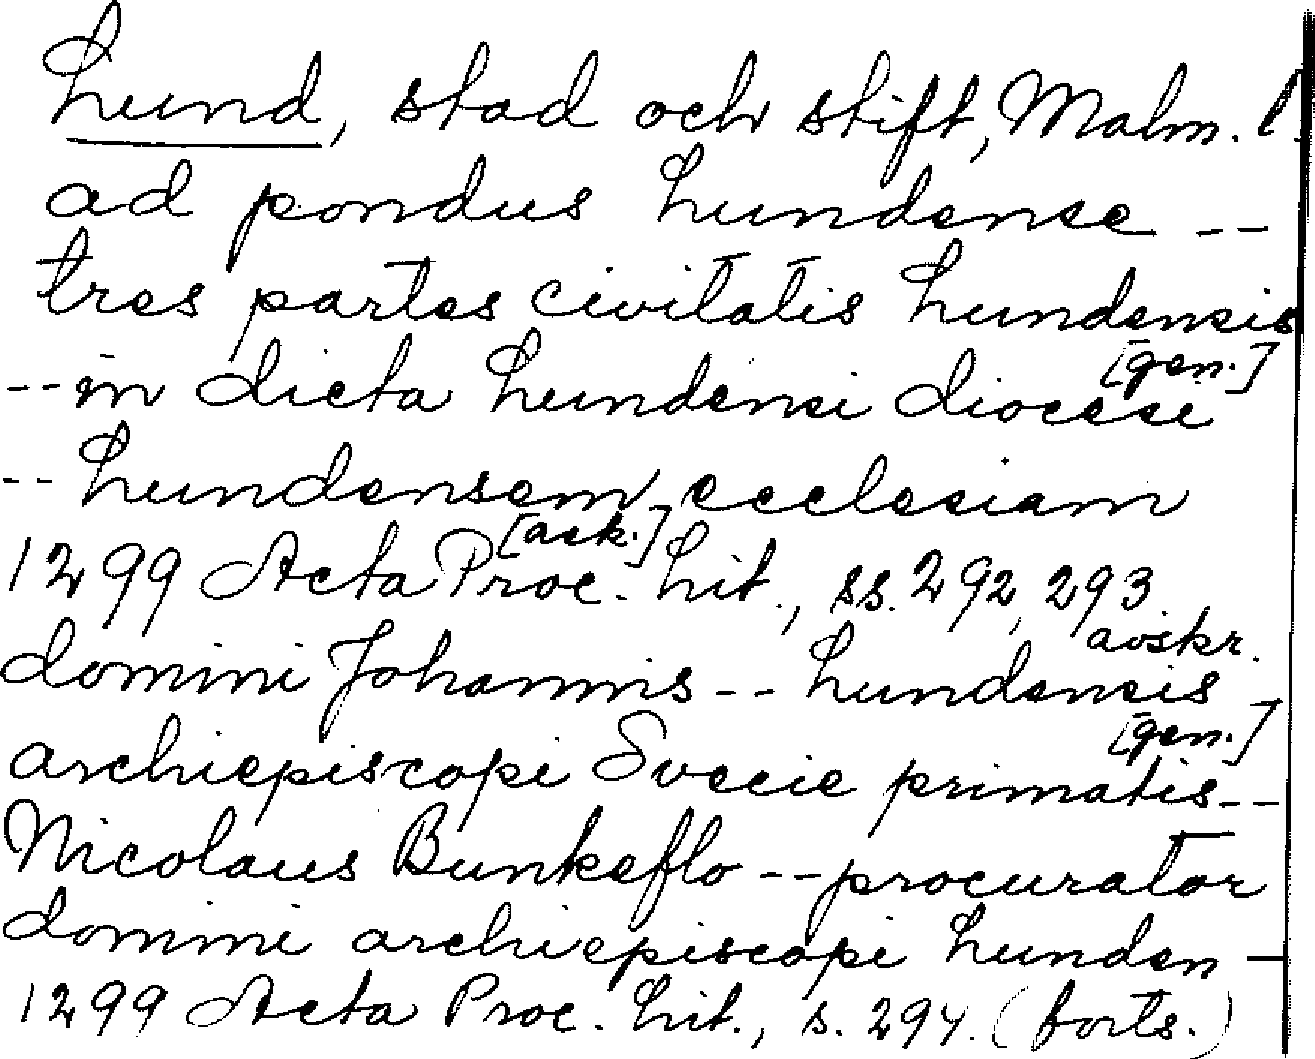 Lund, stad och stift, Malm. l.
ad pondus Lundense --
tres partes civitatis Lundensis
[gen.]
-- in dicta Lundensi diocesi
-- Lundensem ecclesiam
[ack.]
1299 Acta Proc. Lit., ss. 292, 293
avskr.
domini Johannis -- Lundensis
[gen.]
archiepiscopi Svecie primatis --
Nicolaus Bunkeflo -- procurator
domini archiepiscopi Lunden -
1299 Acta Proc. Lit., s. 294. (forts.)